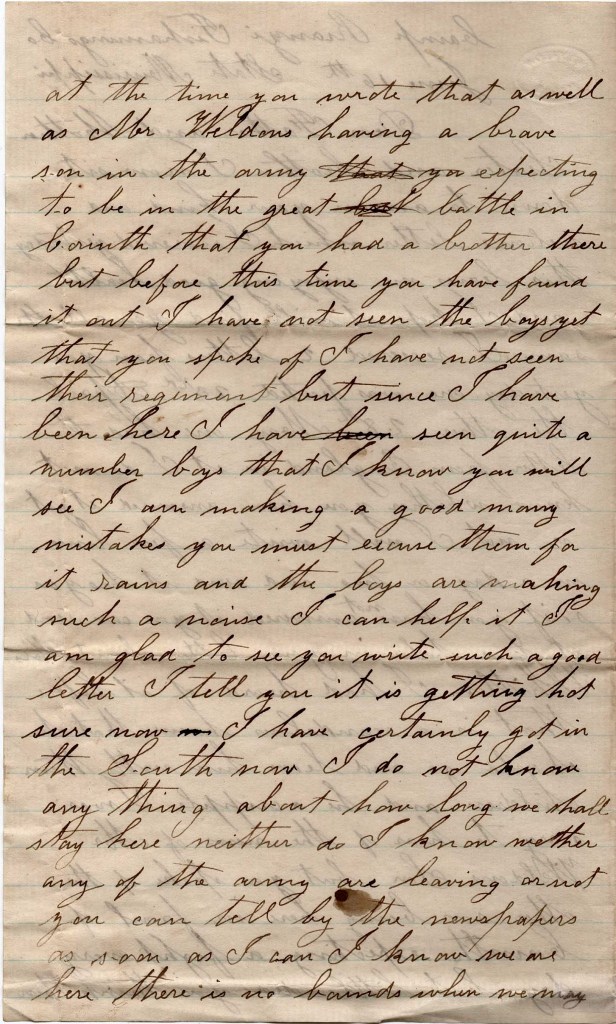 at the time you wrote that as well
as Mr Weldons having a brave
son in the army that you expecting
to be in the great but battle in
Corinth that you had a brother there
but before this time you have found
it out I have not seen the boys yet
that you spoke of I have not seen
their regiment but since I have
been here I have been seen quite a
number boys that I know you will
see I am making a good many
mistakes you must excuse them for
it rains and the boys are making
such a noise I can help it I
am glad to see you write such a good
letter I tell you it is getting hot
sure now I have certainly got in
the South now I do not know
any thing about how long we shall
stay here neither do I know wether
any of the army are leaving or not
you can tell by the newspapers
as soon as I can I know we are
here there is no bounds when we may